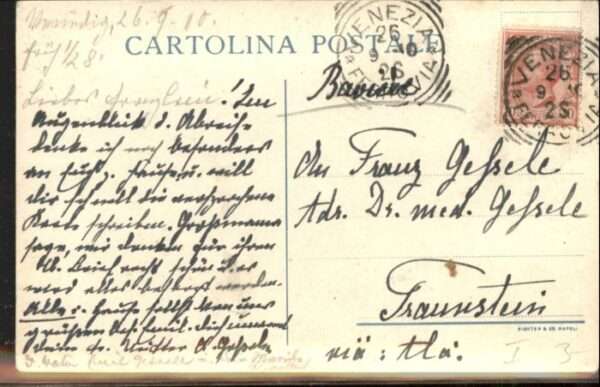 Venedig, 26.9.10.
früh 1/2 8.
CARTOLINA POSTALE
VENEZIA
26
9 10
2S
FERROVIA
VENEZIA
26
9 10
2S
FERROVIA
Baviera
Liebes Franzlein! Im
Augenblick d. Abreise
denke ich noch besonders
an Euch z. Hause u. will
dir schnell die versprochene
Karte schreiben. Großmama
sage, wir danken für ihren
lb. Brief recht schön u. es
wird alles besorgt werden.
Alle z. Hause sollst von uns
grüßen
An Franz Gessele
Adr. Dr. med. Gessele
Traunstein
via: Ala.
RICHTER & CO. NAPOLI
I 3